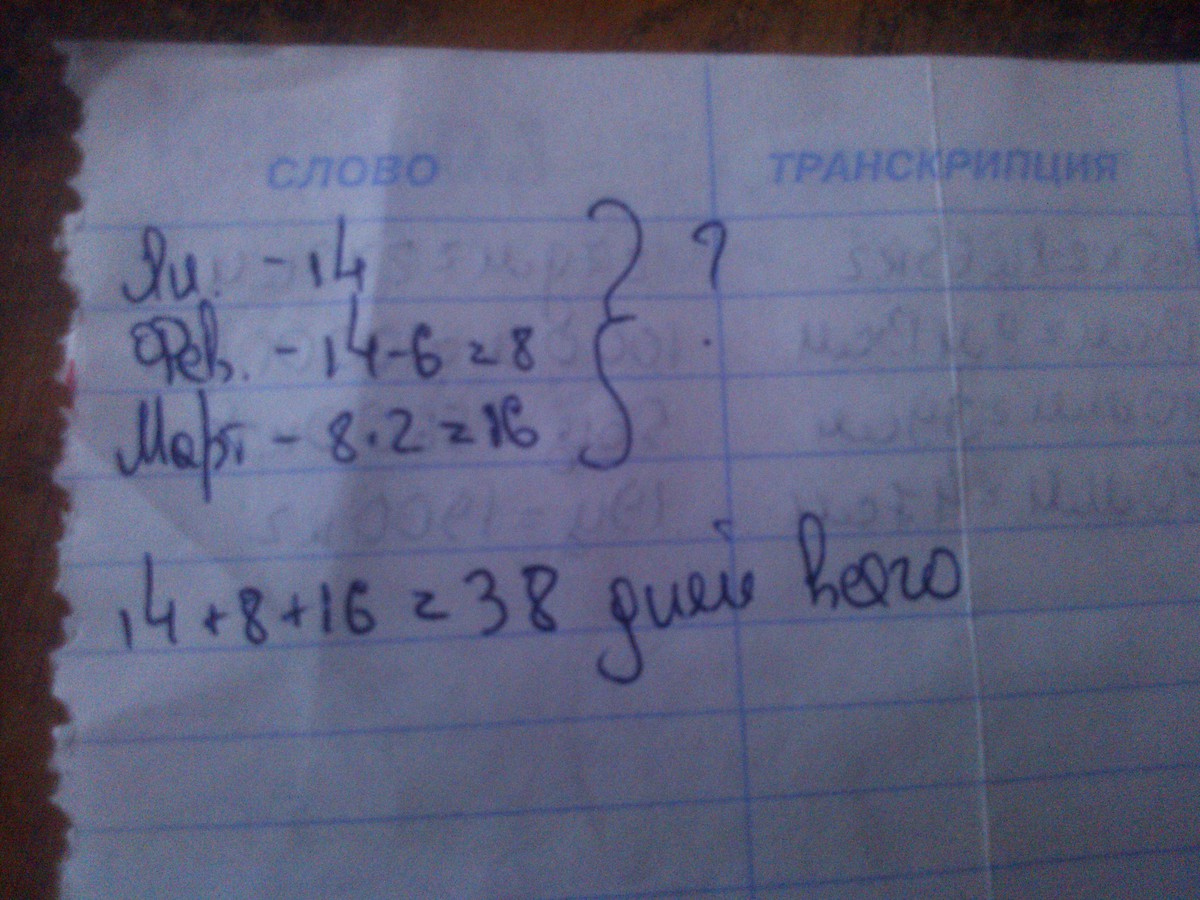 СЛОВО ТРАНСКРИПЦИЯ
Ян. - 14 ?
Фев. - 14-6=8
Март - 8·2=16
14+8+16=38 дней всего